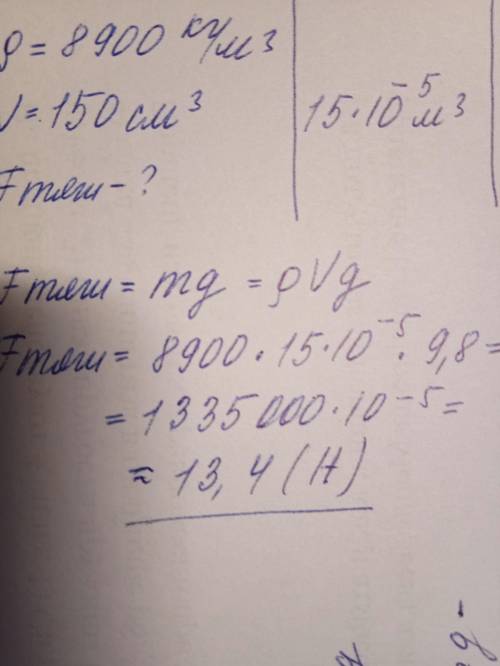 ρ = 8900 кг/м³
V = 150 см³ | 15·10⁻⁵ м³
Fтяж - ?
Fтяж = mg = ρVg
Fтяж = 8900 · 15·10⁻⁵ · 9,8 =
= 1335000·10⁻⁵ =
≈ 13,4 (Н)